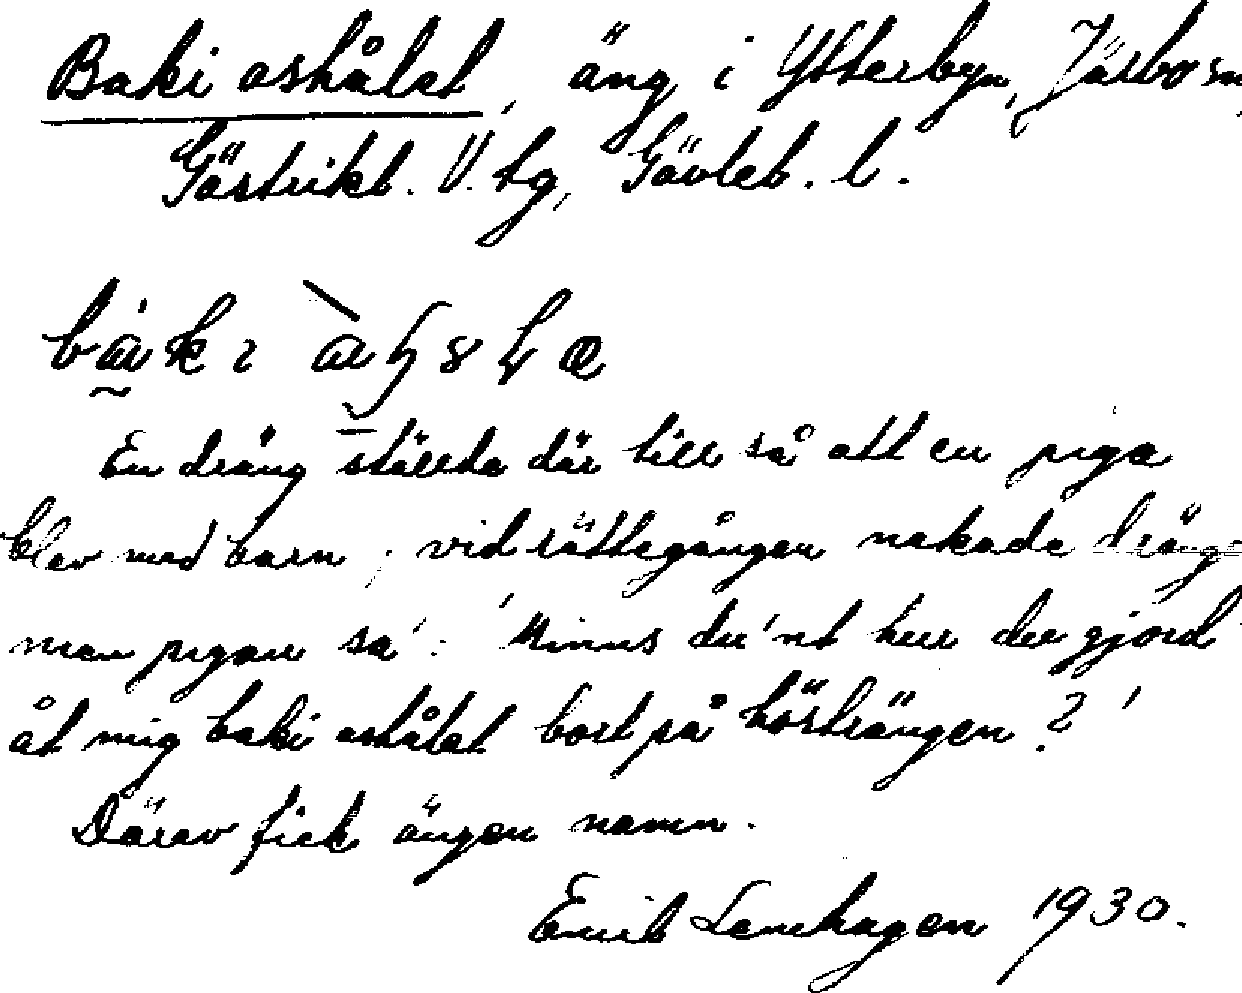 Baki askålet, äng i Ytterbyn, Järbo sn,
Gästrikl. V. tg, Gävleb. l.
En dräng ställde där till så att en piga
blev med barn, vid rättegången nekade dräng
men pigan sa': 'Minns du'nt hur du gjord
åt mig baki askålet bort på hösträngen?'
Därav fick ängen namn.
Emil Lenhagen 1930.